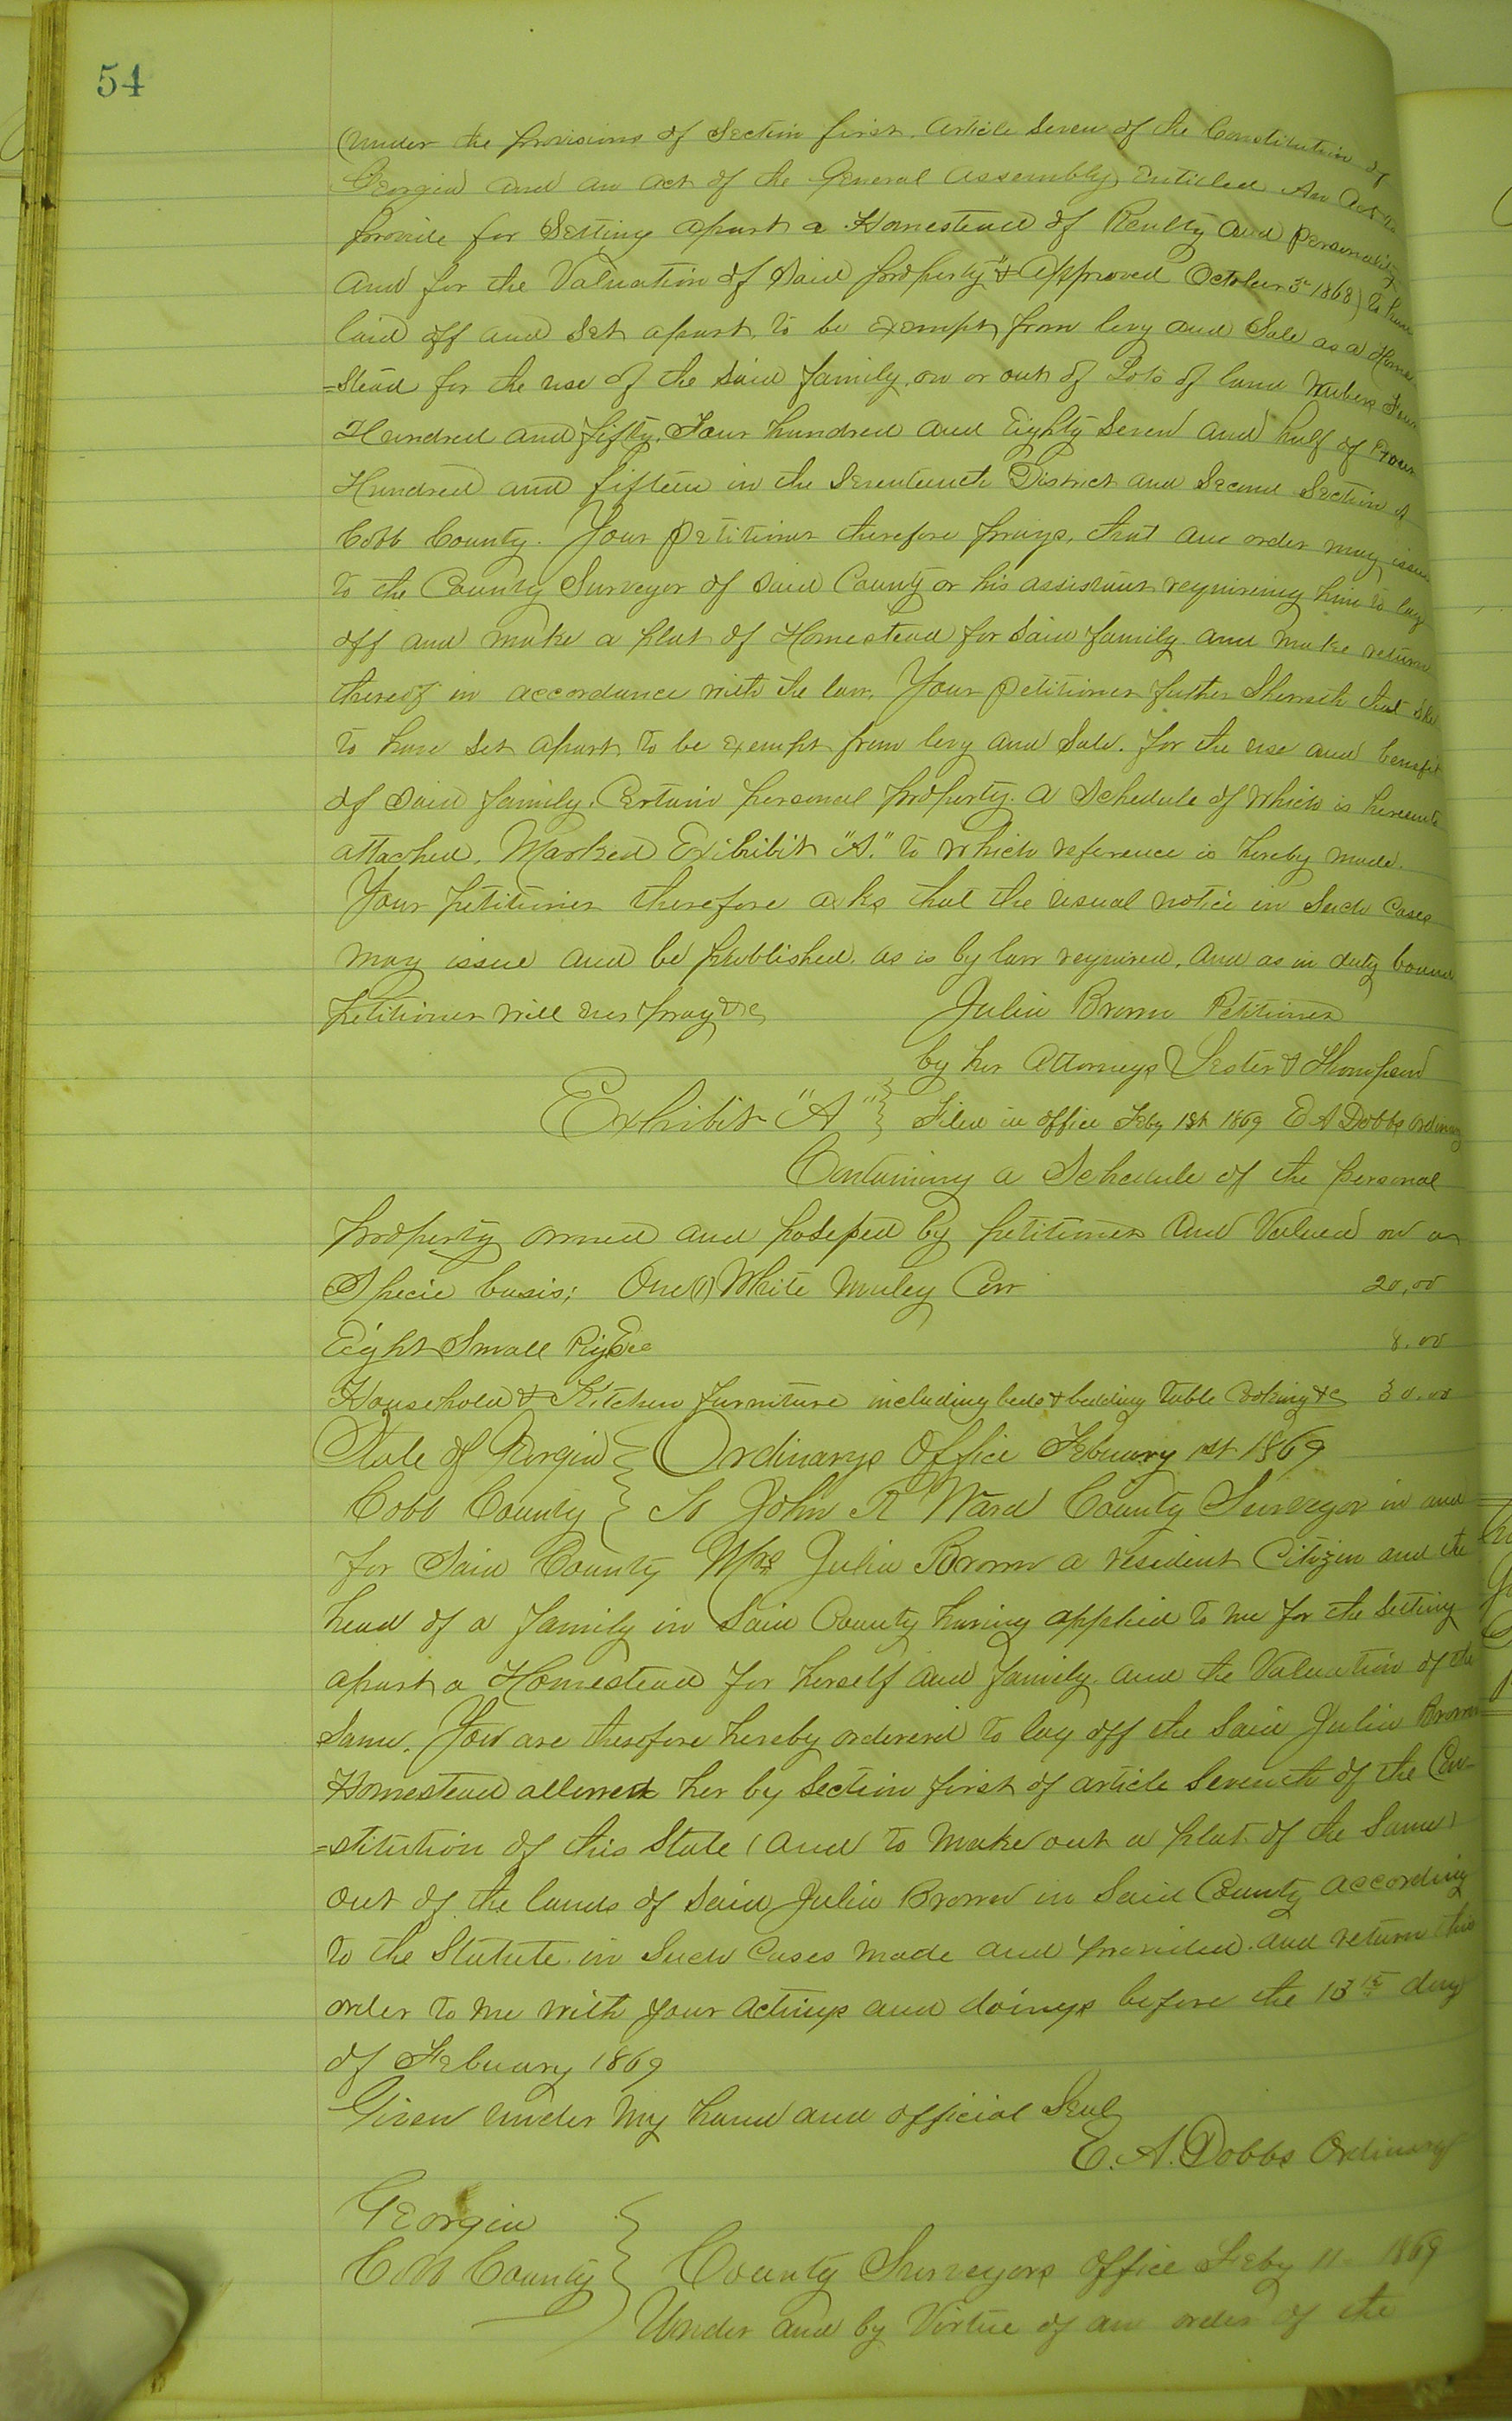 54
(under the provisions of Section first. Article Seven of the Constitution of
Georgia and an act of the General Assembly entitled An Act to
provide for Setting apart a Homestead of Realty and personality
and for the Valuation of Said property" & approved October 3d 1868) to have
laid off and Set apart, to be exempt from levy and Sale as a Home
=Stead for the use of the Said family, on or out of Lots of land Nubers Four
Hundred and fifty, Four hundred and Eighty Seven and half of Four
Hundred and fifteen in the Seventeenth District and Second Section of
Cobb County. Your petitioner therefore prays, that an order may issue
to the County Surveyor of Said County or his assistant requiring him to lay
off and make a plat of Homestead for Said family and make return
thereof in accordance with the law. Your petitioner futher Sheweth that She
to have Set apart to be exempt from levy and Sale. for the use and benefit
of Said family. Certain personal property. a Schedule of which is hereunto
attached. Marked Exibibit "A." to which reference is hereby made.
Your petitioner therefore asks that the usual notice in Such Cases
may issue and be published. as is by law required. And as in duty bound
petitioner will ever pray &c Julia Brown Petitioner
by her Attorneys Lester & Thompson
Exhibit "A" } Filed in office Feby 1st 1869 E A Dobbs Ordinary
Containing a Schedule of the personal
property owned and possessed by petitioner and Valued on a
Specie basis; One (1) White Muley Cow 20.00
Eight Small Pigs 8.00
Household & Kitchen furniture including beds & bedding table Cooking &c 30.00
State of Georgia } Ordinarys Office Febuary 1st 1869
Cobb County } To John R Ward County Surveyor in and
for Said County Mrs Julia Brown a resident Citizen and the
head of a family in Said County having applied to me for the Setting
apart a Homestead for herself and family. and the Valuation of the
Same. You are therefore hereby ordererd to lay off the Said Julia Brown
Homestead allowed her by Section first of article Seventh of the Con-
=stitution of this State (and to make out a plat of the Same)
out of the lands of Said Julia Brown in Said County according
to the Statute in Such Cases made and provided. and return this
order to me with your actings and doings before the 13th day
of Febuary 1869
Given under my hand and official Seal
E. A. Dobbs Ordinary
Georgia }
Cobb County } County Surveyors office Feby 11 1869
Under and by Virtue of an order of the